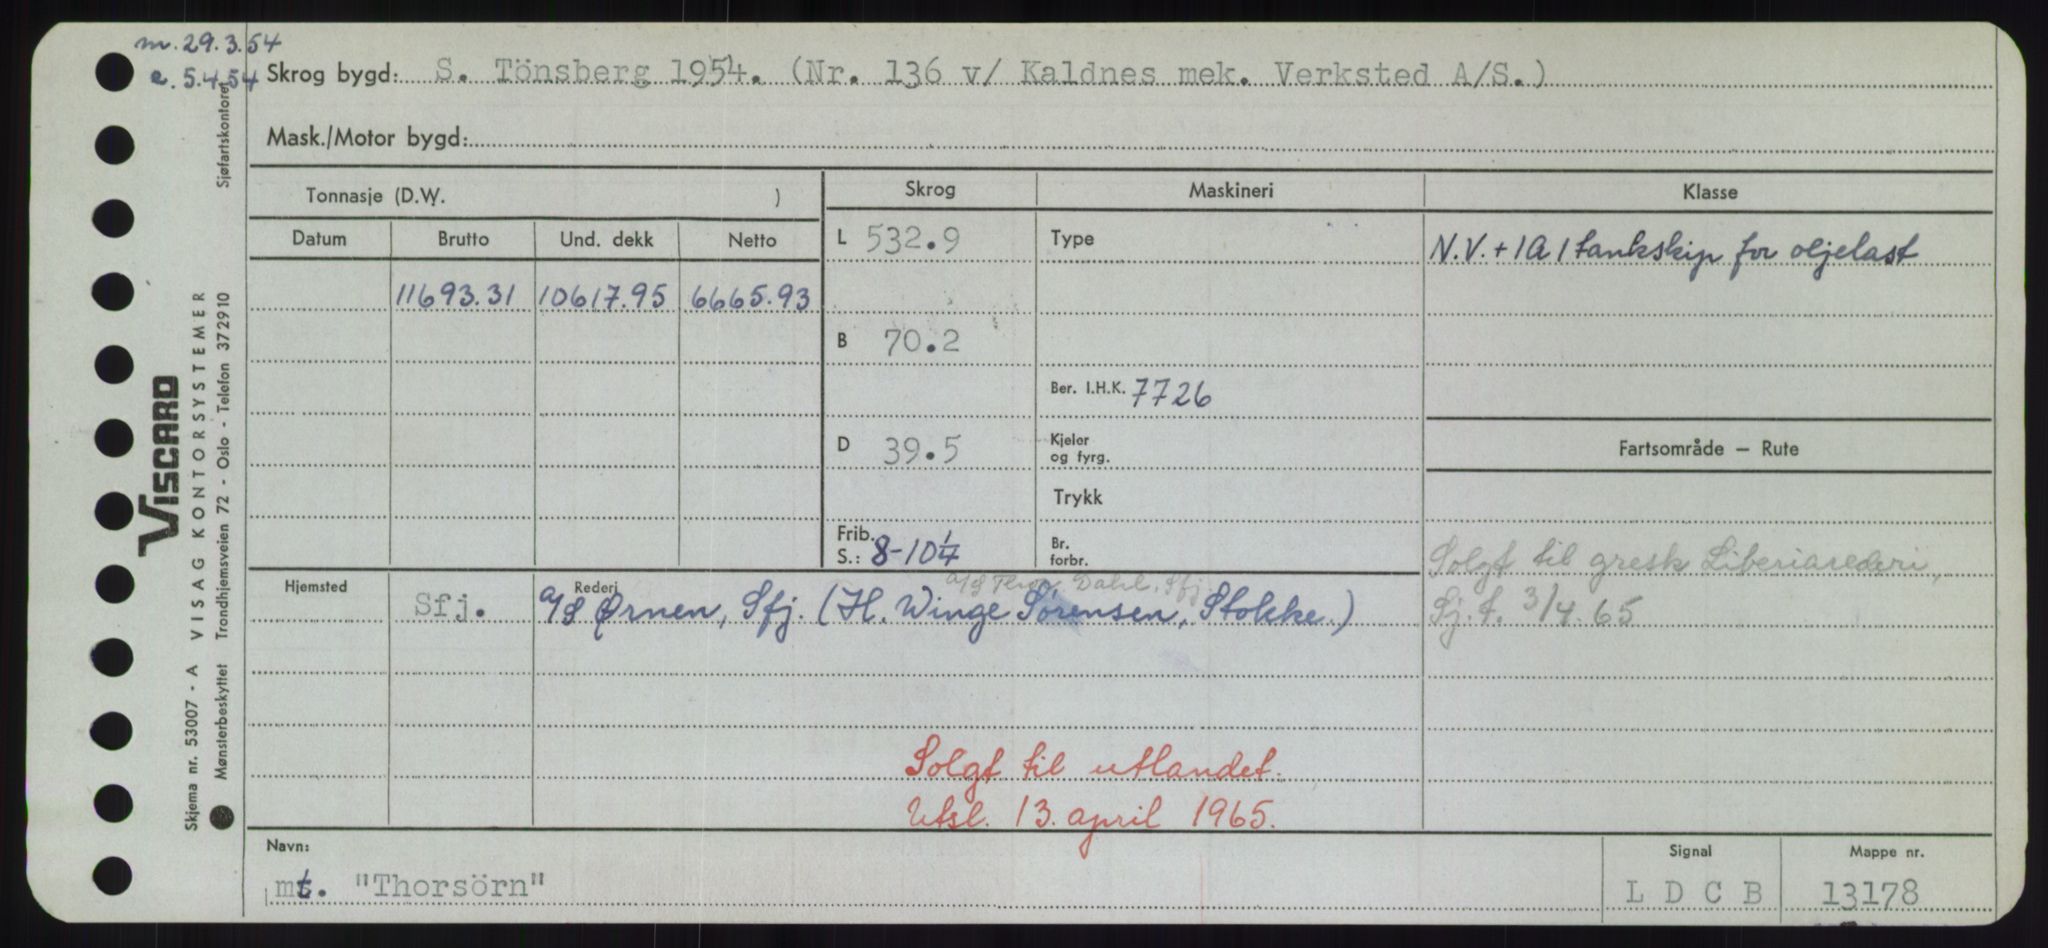 m. 29.3.54
e. 5.4.54
Skrog bygd: S. Tönsberg 1954. (Nr. 136 v/ Kaldnes mek. Verksted A/S.)
Mask./Motor bygd:
Tonnasje (D.W. )
Skrog
Maskineri
Klasse
Datum
Brutto
Und. dekk
Netto
L 532.9
Type
N.V. + 1A1 tankskip for oljelast
11693.31
10617.95
6665.93
B 70.2
Ber. I.H.K. 7726
D 39.5
Kjeler
og fyrg.
Fartsområde – Rute
Trykk
Frib.
S.: 8-10 1/4
Br.
forbr.
Solgt til gresk Liberiarederi,
Sj.t. 3/4.65
Hjemsted
Sfj.
Rederi
A/S Thor Dahl, Sfj.
A/S Ørnen, Sfj. (H. Winge Sørensen, Stokke.)
Solgt til utlandet.
Utsl. 13. april 1965.
Navn:
mt. "Thorsörn"
Signal
L D C B
Mappe nr.
13178
VISCARD
Skjema nr. 53007 - A VISAG KONTORSYSTEMER
Mønsterbeskyttet Trondhjemsveien 72 - Oslo - Telefon 372910
Sjøfartskontoret